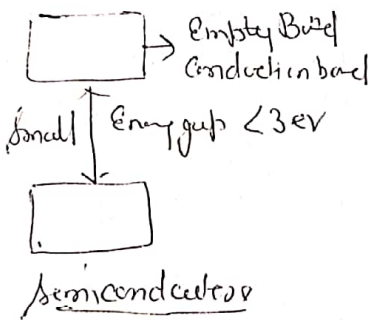 Empty Band
Conduction band
Small Energy gap < 3 eV
Semiconductor